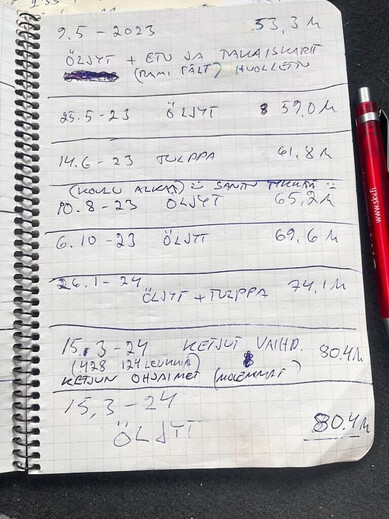 9.5 - 2023 53,3 h
ÖLJYT + ETU JA TAKAISKARIT
(RAMI FÄLT) HUOLLETTU
25.5 - 23 ÖLJYT 59,0 h
14.6 - 23 TULPPA 61.8 h
(KOULU ALKAA)
10.8 - 23 ÖLJYT 65,2 h
6.10 - 23 ÖLJYT 69,6 h
26.1 - 24 74,1 h
ÖLJYT + TULPPA
15.3 - 24 KETJUT VAIHD. 80.4 h
(428 124 LENKKIÄ)
KETJUN OHJAIMET (MOLEMMAT)
15,3 - 24
ÖLJYT 80.4 h